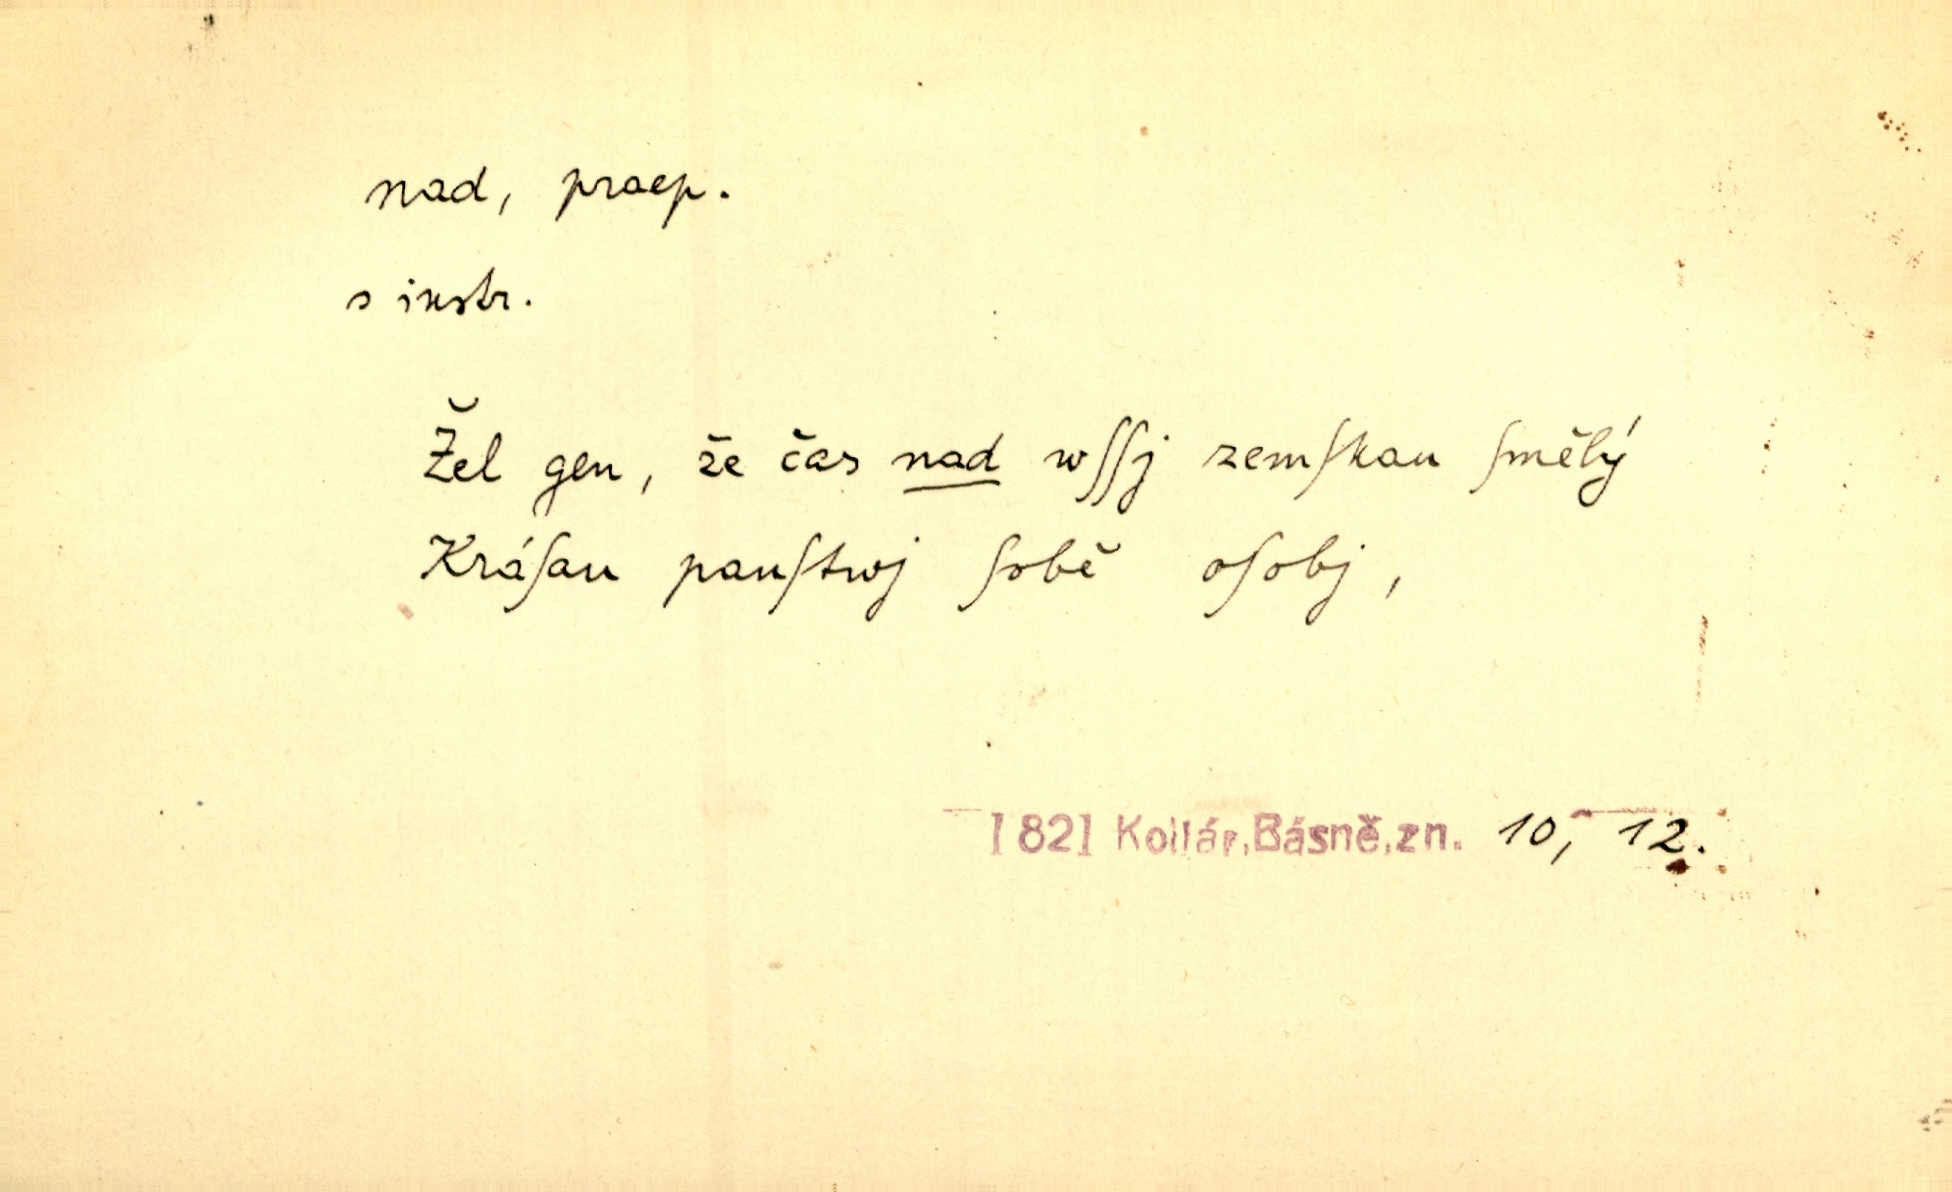 nad, praep.
s instr.
Žel gen, že čas nad wſſj zemſkau ſmělý
Kráſau panſtwj ſobě oſobj,
1821 Kollár, Básně, zn. 10, 12.